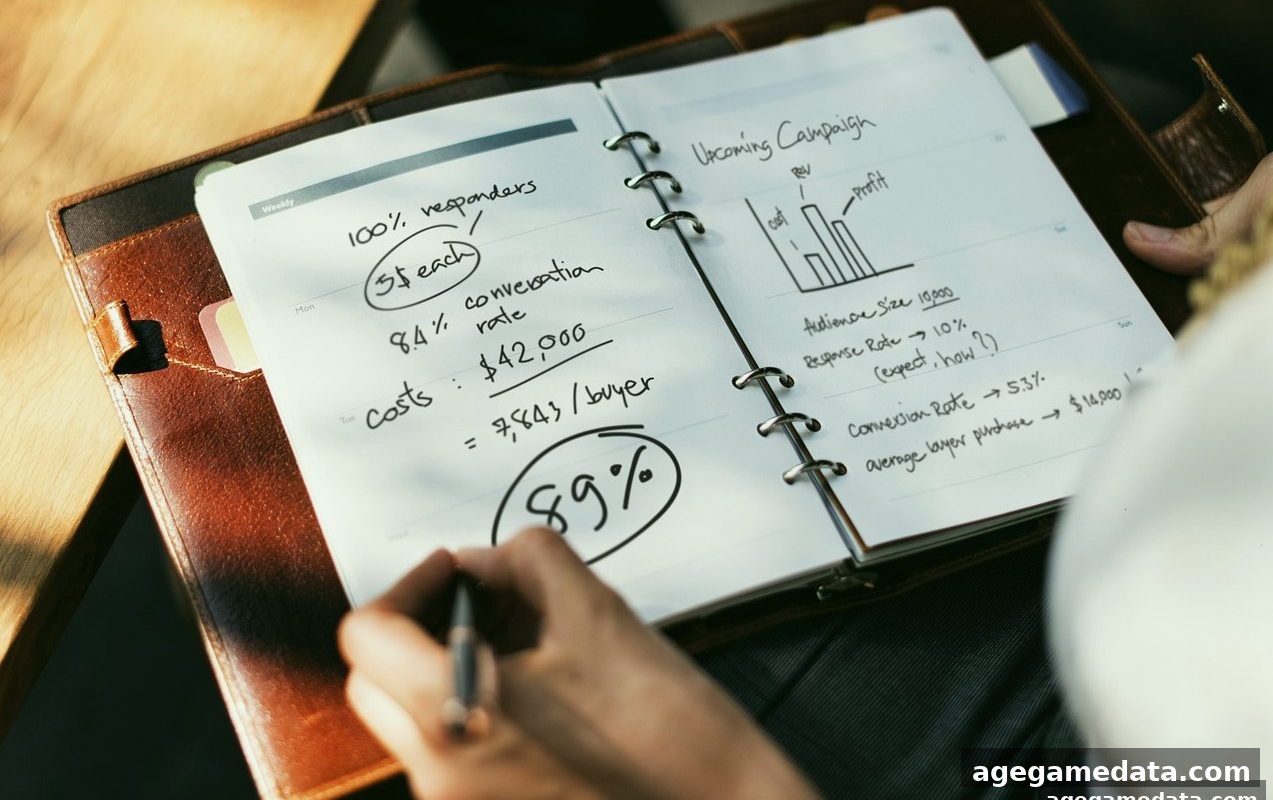 Weekly
100% responders
5$ each
8.4% conversation
rate
costs : $42,000
= 7,843 / buyer
89%
Mon
Tue
Wed
Upcoming Campaign
cost
Rev
profit
Audience Size 10,000
Response Rate → 10%
(expect, how?)
Conversion Rate → 5.3%
average buyer purchase → $14,000
Sat
Sun
agegamedata.com
agegamedata.com